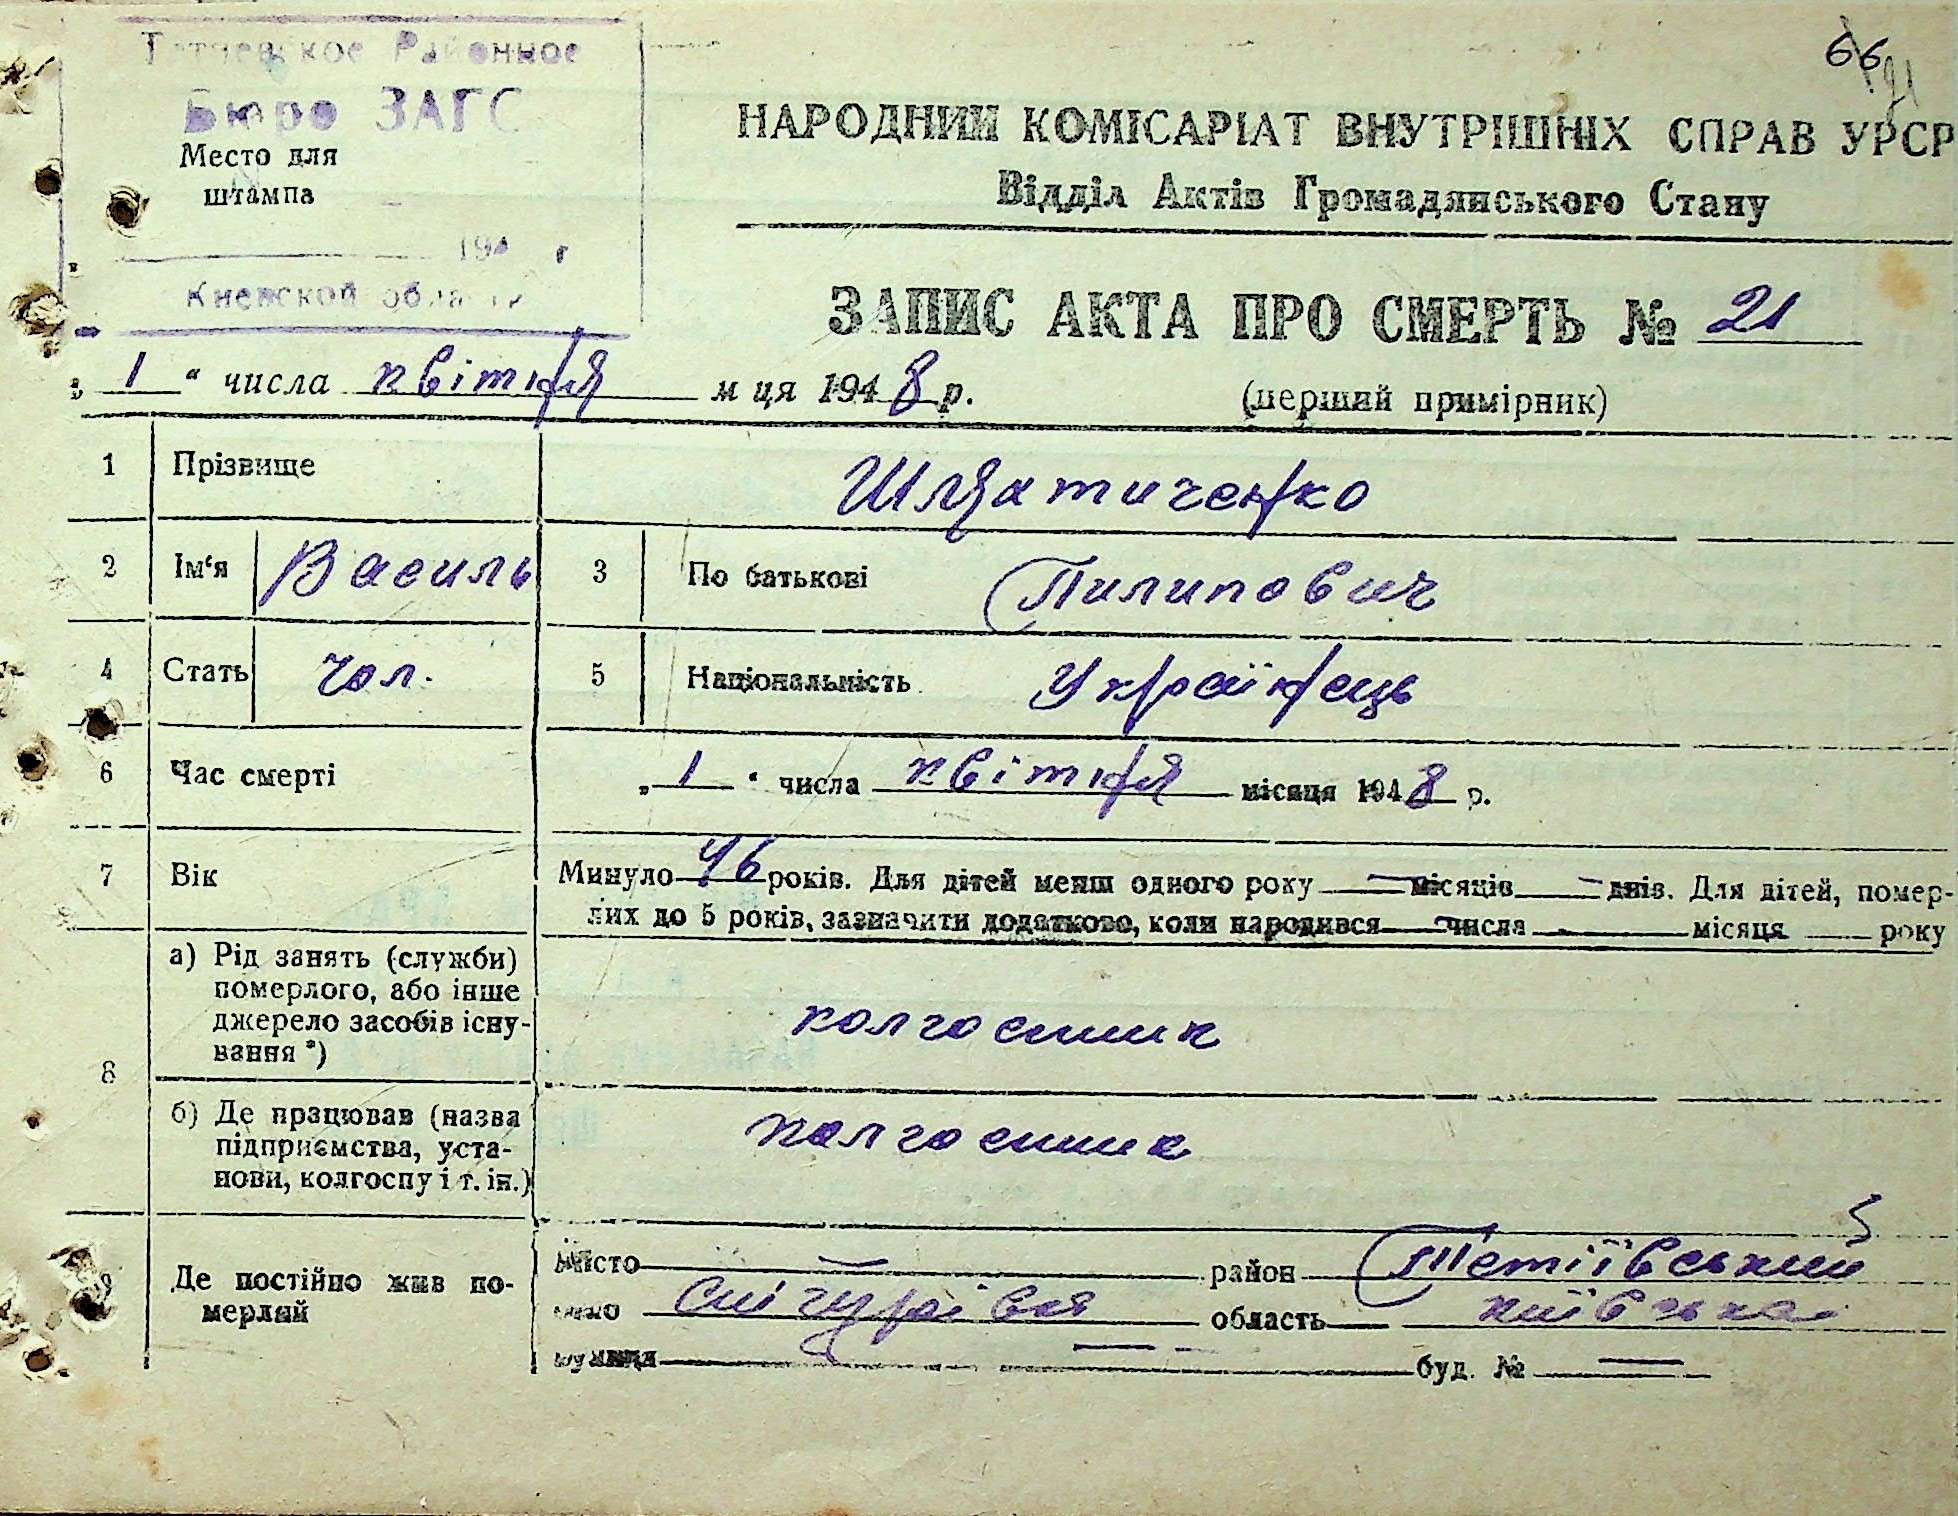 66
Тетиевское Районное
Бюро ЗАГС
Место для
штампа
194 г
Киевской области
НАРОДНИЙ КОМІСАРІАТ ВНУТРІШНІХ СПРАВ УРСР
Відділ Актів Громадянського Стану
ЗАПИС АКТА ПРО СМЕРТЬ № 21
„ 1 “ числа квітня м ця 1948 р.
(перший примірник)
1 Прізвище Шлятиченко
2 Ім‘я Василь 3 По батькові Пилипович
4 Стать чол. 5 Національність Українець
6 Час смерті „ 1 “ числа квітня місяця 1948 р.
7 Вік Минуло 46 років. Для дітей менш одного року — місяців — днів. Для дітей, помер-
лих до 5 років, зазначити додатково, коли народився — числа — місяця року
8 а) Рід занять (служби)
померлого, або інше
джерело засобів існу-
вання *)
колгоспник
б) Де працював (назва
підприємства, уста-
нови, колгоспу і т. ін.)
колгоспник
9 Де постійно жив по-
мерлий
Місто — район Тетіївський
село Снігурівка область київська
вулиця — буд. № —